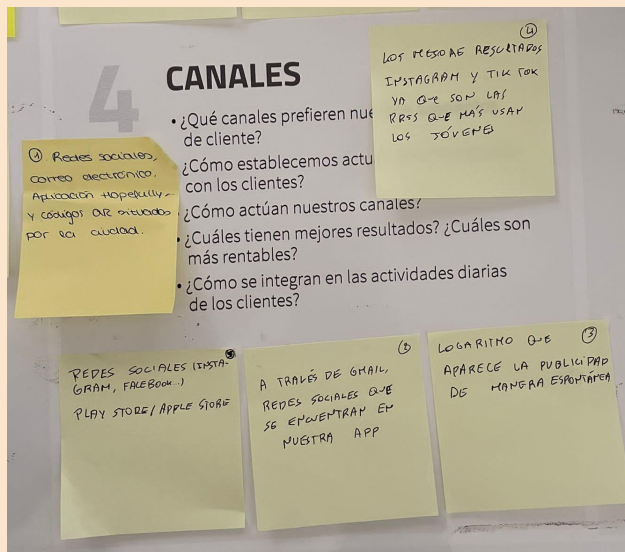 4
CANALES
• ¿Qué canales prefieren nue
de cliente?
¿Cómo establecemos actu
con los clientes?
¿Cómo actúan nuestros canales?
• ¿Cuáles tienen mejores resultados? ¿Cuáles son
más rentables?
• ¿Cómo se integran en las actividades diarias
de los clientes?
④
LOS MEJORAE RESULTADOS
INSTAGRAM Y TIK TOK
YA QUE SON LAS
RRSS QUE MÁS USAN
LOS JÓVENES
① Redes sociales,
correo electrónico,
Aplicación Hopefully,
y códigos QR situados
por la ciudad.
REDES SOCIALES (INSTA-
GRAM, FACEBOOK...)
PLAY STORE/APPLE STORE
A TRAVÉS DE GMAIL,
REDES SOCIALES QUE
SE ENCUENTRAN EN
NUESTRA APP
③
LOGARITMO QUE
APARECE LA PUBLICIDAD
DE MANERA ESPONTÁNEA